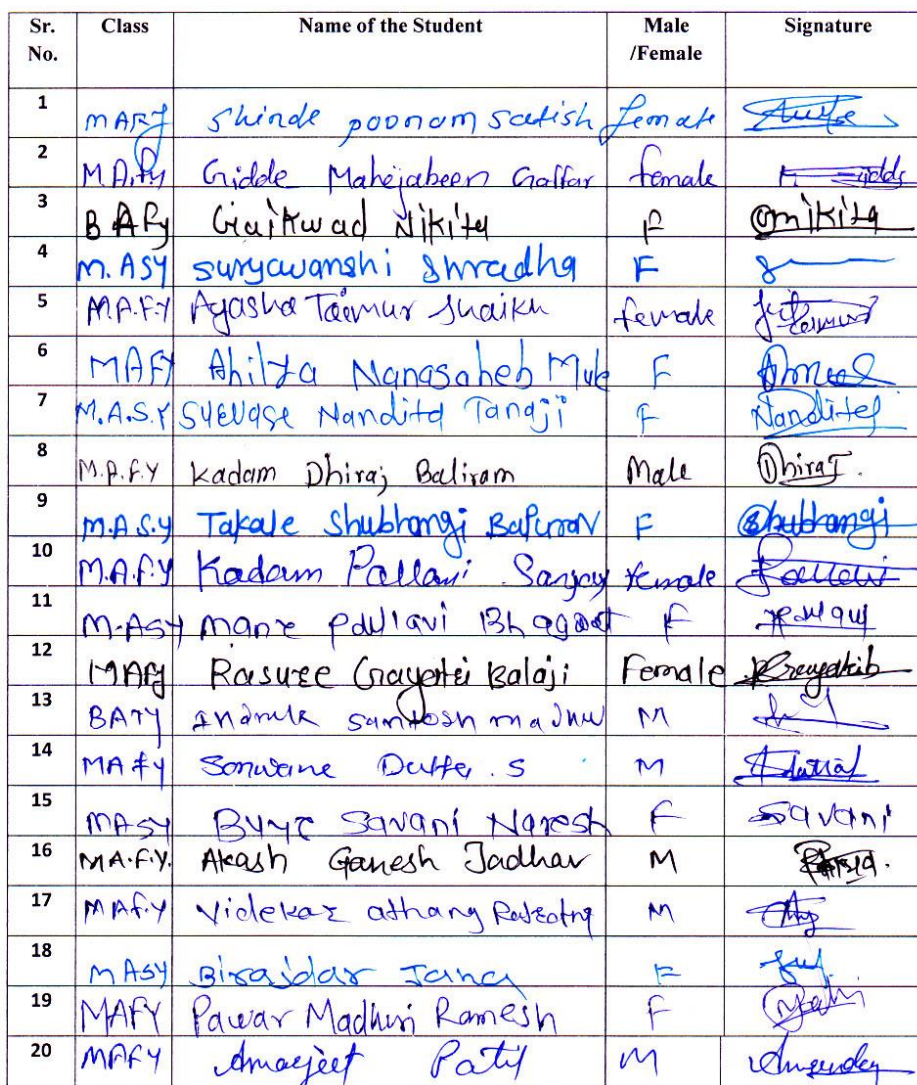 Sr. No. Class Name of the Student Male /Female Signature
1 MAFY Shinde poonam Satish female
2 M.A.Fy Gidde Mahejabeen Gaffar female
3 B AFy Gaikwad Nikita F Gnikita
4 M.ASY suryawanshi Shradha F
5 M.A.F.Y Ayasha Taimur Shaikh female
6 MAFY Ahilya Nanasaheb Mule F
7 M.A.S.Y Survase Nandita Tangji F Nandita
8 M.A.F.Y Kadam Dhiraj Baliram Male Dhiraj.
9 M.A S.Y Takale Shubhangi Bapurav F Shubhangi
10 M.A.F.Y Kadam Pallavi Sanjay female Pallavi
11 M.ASY Mane pallavi Bhagwat F
12 MAFy Rasure Gayatri Balaji Female
13 BATY santosh M
14 MAFY Sonwane Datta . S M
15 MASY Savani Naresh F Savani
16 M.A.F.Y. Akash Ganesh Jadhav M
17 MAF.Y Videkar athang M
18 MASY Birajdar Jana F
19 MAFY Pawar Madhuri Ramesh F
20 MAFY Amarjeet Patil M